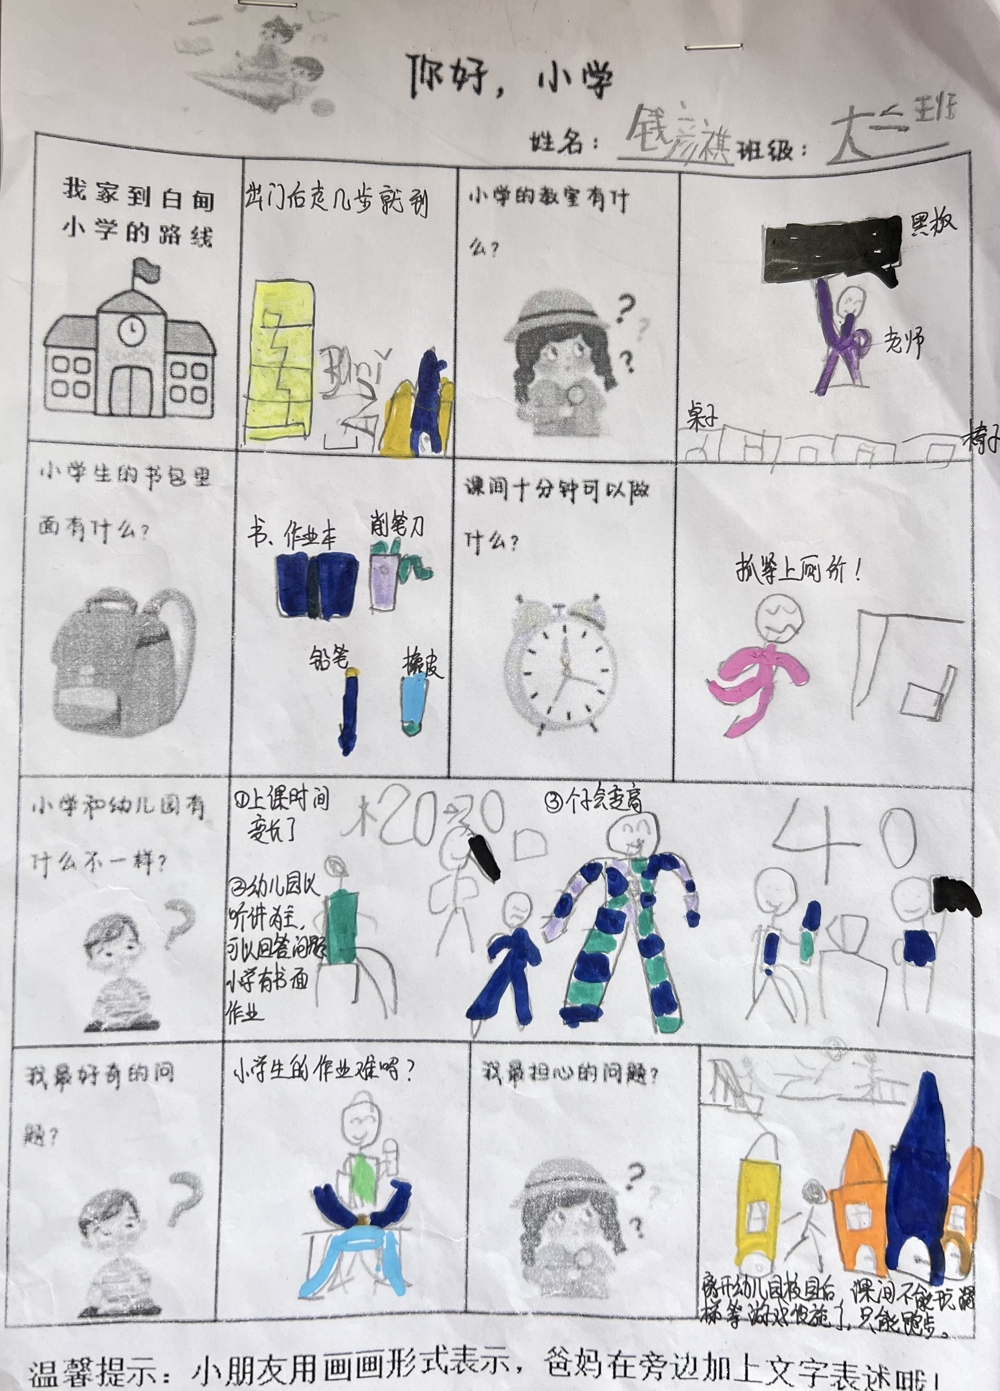 你好，小学
姓名：钱彦祺 班级：大二
我家到白甸
小学的路线
出门后走几步就到
小学的教室有什
么？
黑板
老师
桌子
椅子
小学生的书包里
面有什么？
书、作业本
削笔刀
铅笔
橡皮
课间十分钟可以做
什么？
抓紧上厕所！
小学和幼儿园有
什么不一样？
①上课时间
变长了
20-30
②幼儿园以
听讲为主，
可以回答问题
小学有书面
作业
③个子会变高
40
我最好奇的问
题？
小学生的作业难吗？
我最担心的问题？
离开幼儿园校园后，课间不能玩滑
梯等游戏设施了，只能跑步。
温馨提示：小朋友用画画形式表示，爸妈在旁边加上文字表述哦！